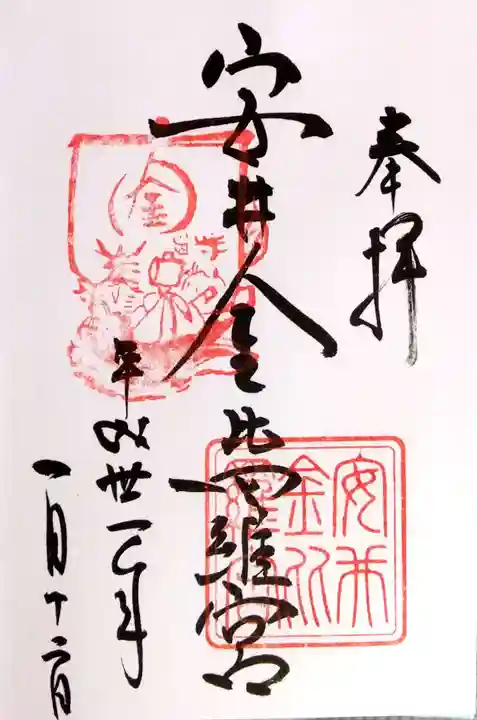 奉拝
安井金比羅宮
平成卅一年
一月十二日
金
安井
金比
羅